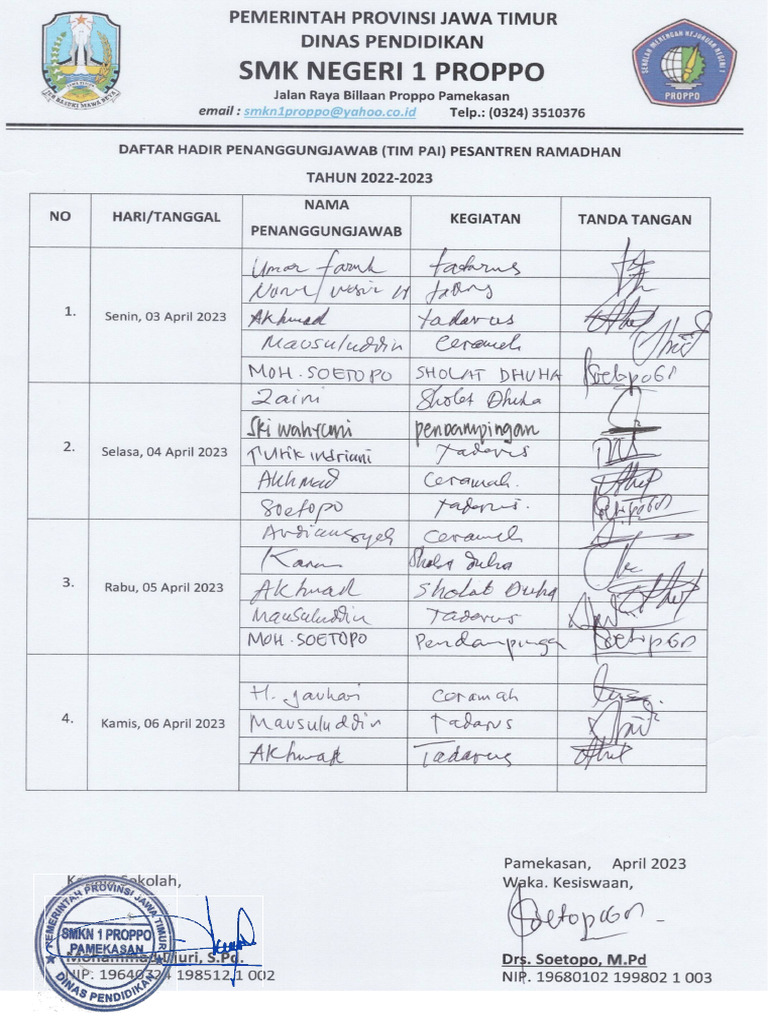 PEMERINTAH PROVINSI JAWA TIMUR
DINAS PENDIDIKAN
SMK NEGERI 1 PROPPO
Jalan Raya Billaan Proppo Pamekasan
email : smkn1proppo@yahoo.co.id Telp.: (0324) 3510376
SEKOLAH MENENGAH KEJURUAN NEGERI 1
PROPPO
DAFTAR HADIR PENANGGUNGJAWAB (TIM PAI) PESANTREN RAMADHAN
TAHUN 2022-2023
NO HARI/TANGGAL NAMA PENANGGUNGJAWAB KEGIATAN TANDA TANGAN
1. Senin, 03 April 2023
Umar Faruk tadarus
Akhmad tadarus
Mausuluddin ceramah
MOH. SOETOPO SHOLAT DHUHA Soetopo
2. Selasa, 04 April 2023
Zaini Sholat Dhuha
Sri wahyuni pendampingan
Tutik indriani Tadarus
Akhmad Ceramah.
Soetopo Tadarus.
3. Rabu, 05 April 2023
Ardiansyah ceramah
duha
Akhmad Sholat Duha
Mausuluddin Tadarus
MOH. SOETOPO Pendampinga Soetopo
4. Kamis, 06 April 2023
H. Jauhari ceramah
Mausuluddin Tadarus
Akhmad Tadarus
Pamekasan, April 2023
Sekolah,
Waka. Kesiswaan,
PEMERINTAH PROVINSI JAWA TIMUR
SMKN 1 PROPPO
PAMEKASAN
DINAS PENDIDIKAN
Soetopo
S.Pd.
Drs. Soetopo, M.Pd
NIP. 19640324 198512 1 002
NIP. 19680102 199802 1 003